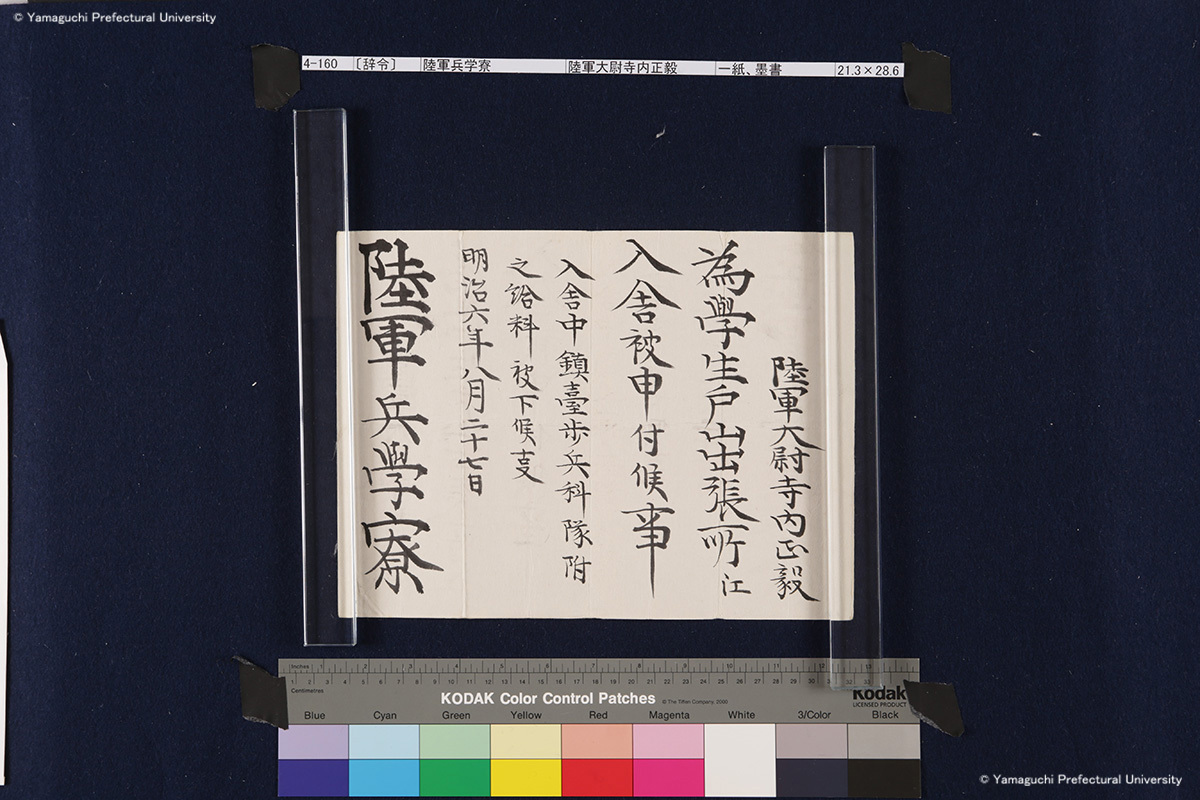 © Yamaguchi Prefectural University
4-160 〔辞令〕 陸軍兵学寮 陸軍大尉寺内正毅 一紙、墨書 21.3×28.6
陸軍大尉寺内正毅
為學生戸山出張所江
入舎被申付候事
入舎中鎮臺歩兵科隊附
之給料被下候事
明治六年八月二十七日
陸軍兵學寮
Inches 1 2 3 4 5 6 7 8 9 10 11 12 13
1 2 3 4 5 6 7 8 9 10 11 12 13 14 15 16 17 18 19 20 21 22 23 24 25 26 27 28 29 30 31 32 33
Centimetres
KODAK Color Control Patches © The Tiffen Company, 2000
Kodak
LICENSED PRODUCT
Blue Cyan Green Yellow Red Magenta White 3/Color Black
© Yamaguchi Prefectural University